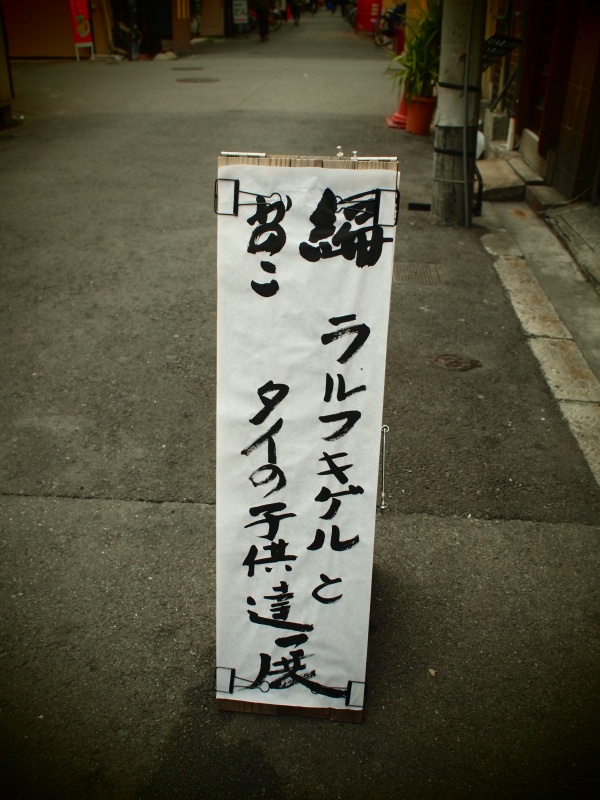 編 ラルフキゲルと
かのこ タイの子供達展